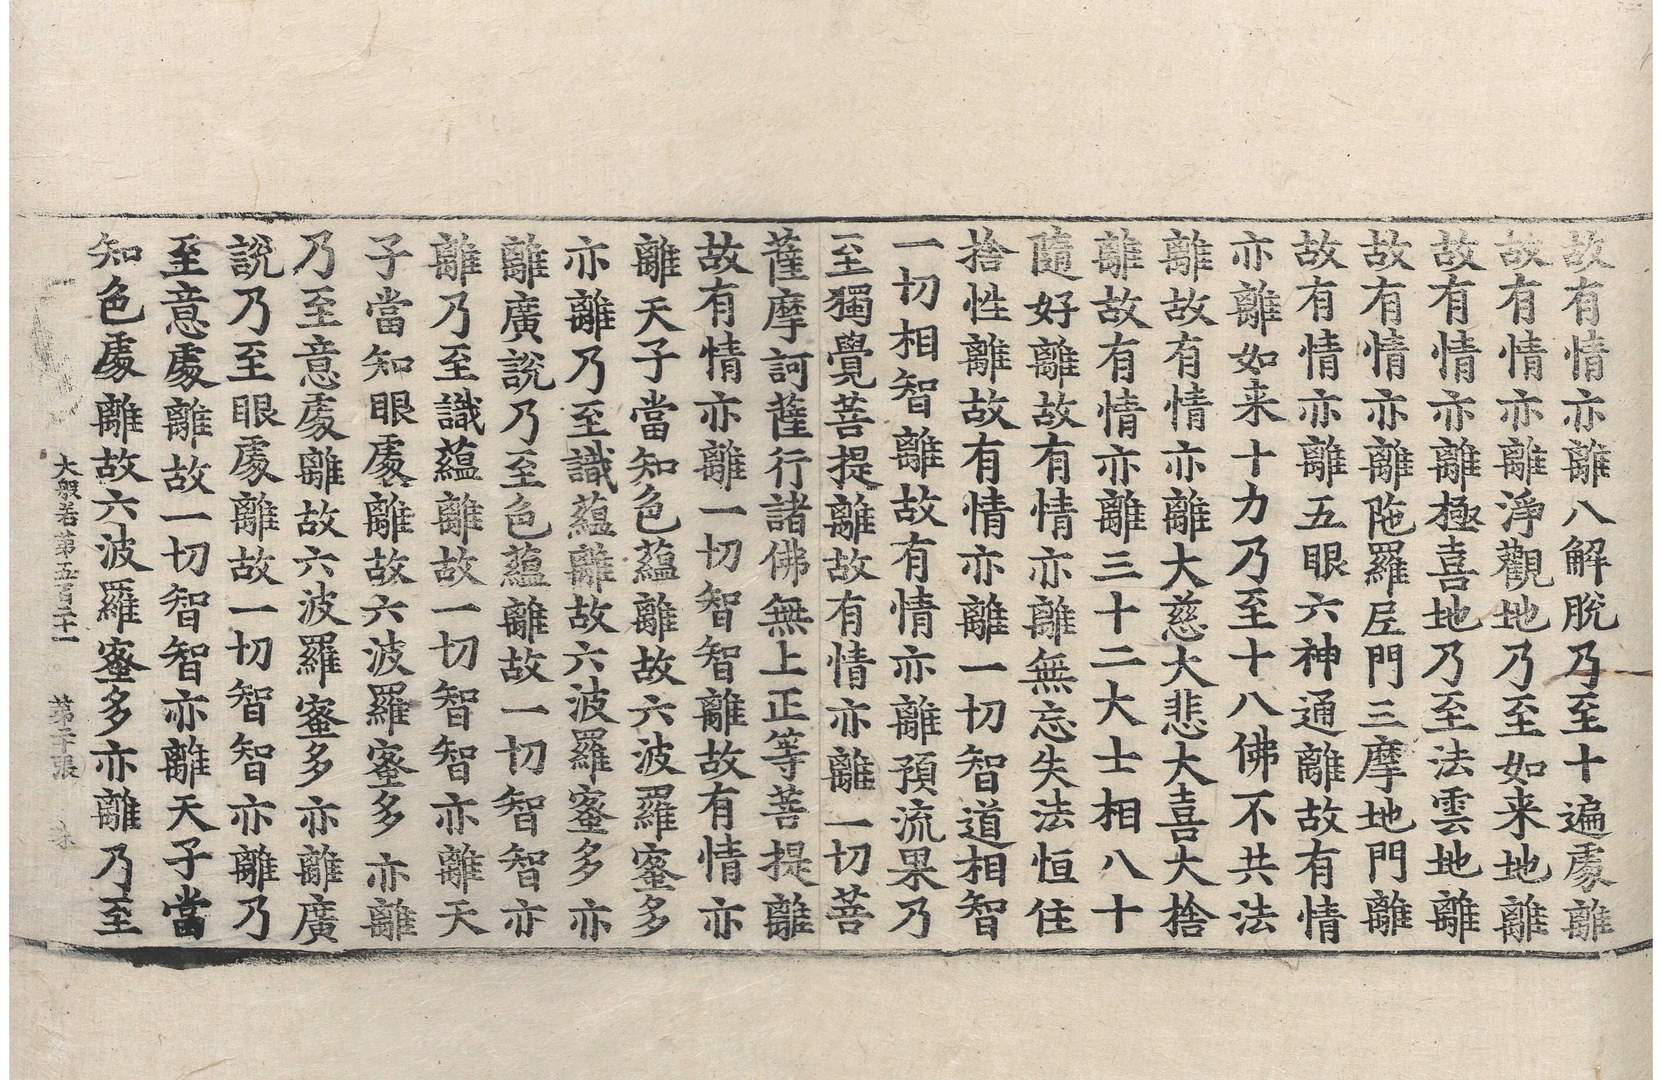 故有情亦離八解脫乃至十遍處離
故有情亦離淨觀地乃至如来地離
故有情亦離極喜地乃至法雲地離
故有情亦離陁羅尼門三摩地門離
故有情亦離五眼六神通離故有情
亦離如来十力乃至十八佛不共法
離故有情亦離大慈大悲大喜大捨
離故有情亦離三十二大士相八十
隨好離故有情亦離無忘失法恒住
捨性離故有情亦離一切智道相智
一切相智離故有情亦離預流果乃
至獨覺菩提離故有情亦離一切菩
薩摩訶薩行諸佛無上正等菩提離
故有情亦離一切智智離故有情亦
離天子當知色蘊離故六波羅蜜多
亦離乃至識蘊離故六波羅蜜多亦
離廣說乃至色蘊離故一切智智亦
離乃至識蘊離故一切智智亦離天
子當知眼處離故六波羅蜜多亦離
乃至意處離故六波羅蜜多亦離廣
說乃至眼處離故一切智智亦離乃
至意處離故一切智智亦離天子當
知色處離故六波羅蜜多亦離乃至
大般若第五百二十一 第二十張